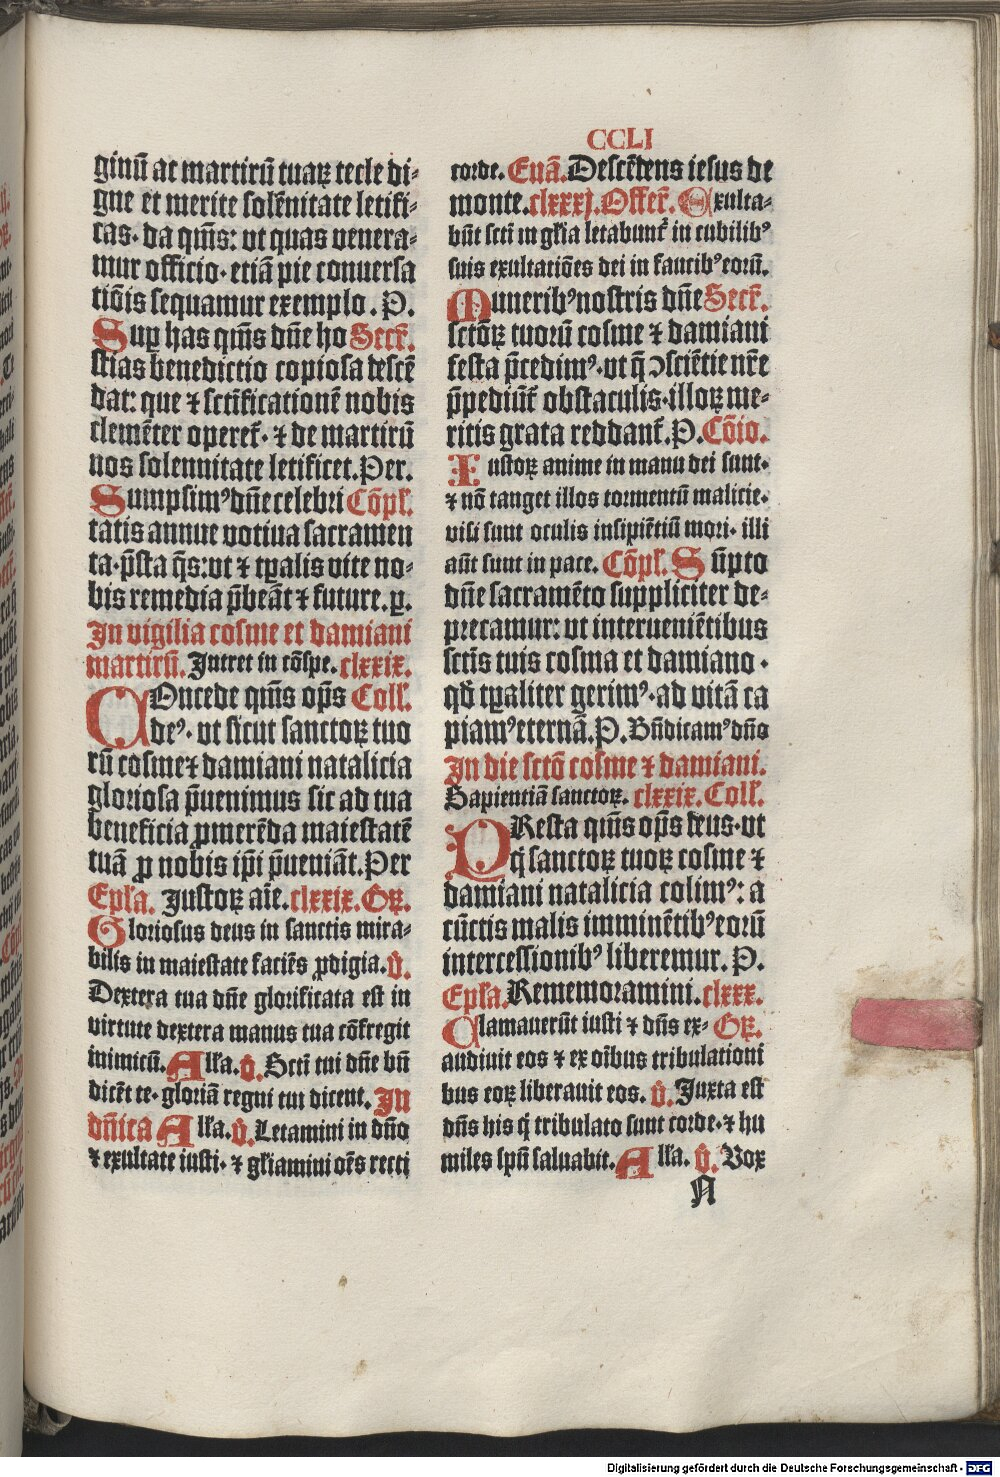 CCLI
ginū ac martirū tuaꝝ tecle di⸗
gne et merite solēnitate letifi⸗
cas· da qm̄s: vt quas venera⸗
mur officio· etiā pie conuersa
tiōis sequamur exemplo. P.
Suꝑ has qm̄s dn̄e ho Secr̄.
stias benedictio copiosa descē
dat: que ⁊ sctificationē nobis
clemēter operet̄· ⁊ de martirū
nos solennitate letificet. Per.
Sumpsimꝰ dn̄e celebri Cōpl̄.
tatis annue votiua sacramen
ta· p̄sta q̄s: vt ⁊ tꝑalis vite no⸗
bis remedia p̄beāt ⁊ future. ꝑ.
In vigilia cosme et damiani
martirū. Intret in cōspe. clxxix.
COncede qm̄s op̄s Coll̄.
deꝰ· vt sicut sanctoꝝ tuo
rū cosme ⁊ damiani natalicia
gloriosa p̄uenimus sic ad tua
beneficia ꝓmerēda maiestatē
tuā ꝓ nobis ip̄i p̄ueniāt. Per
Epl̄a. Iustoꝝ aīe. clxxix. Gꝝ.
Gloriosus deus in sanctis mira⸗
bilis in maiestate faciēs ꝓdigia. v̄.
Dextera tua dn̄e glorificata est in
virtute dextera manus tua cōfregit
inimicū. All̄a. v̄. Scti tui dn̄e bn̄
dicēt te· gloriā regni tui dicent. In
dn̄ica All̄a. v̄. Letamini in dn̄o
⁊ exultate iusti· ⁊ gl̄iamini oēs recti
corde. Euā. Descēdens iesus de
monte. clxxxj. Offer̄. Exulta⸗
būt scti in gl̄ia letabunt̄ in cubilibꝰ
suis exultatiōes dei in faucibꝰ eorū.
Muneribꝰ nostris dn̄e Secr̄.
sctōꝝ tuorū cosme ⁊ damiani
festa p̄cedimꝰ· vt q̄ ↄsciētie nr̄e
p̄pediūt̄ obstaculis· illoꝝ me⸗
ritis grata reddant̄. P. Cōio.
Iustoꝝ anime in manu dei sunt·
⁊ nō tanget illos tormentū malicie·
visi sunt oculis insipiētiū mori· illi
aūt sunt in pace. Cōpl̄. Sūpto
dn̄e sacramēto suppliciter de⸗
precamur: vt interueniētibus
sctis tuis cosma et damiano·
qd̄ tꝑaliter gerimꝰ· ad vitā ca
piamꝰ eternā. P. Bn̄dicamꝰ dn̄o
In die sctō cosme ⁊ damiani.
Sapientiā sanctoꝝ. clxxix. Coll̄.
PResta qm̄s op̄s deus· vt
q̄ sanctoꝝ tuoꝝ cosme ⁊
damiani natalicia colimꝰ: a
cūctis malis imminētibꝰ eorū
intercessionibꝰ liberemur. P.
Epl̄a. Rememoramini. clxxx.
Clamauerūt iusti ⁊ dn̄s ex⸗ Gꝝ.
audiuit eos ⁊ ex oībus tribulationi
bus eoꝝ liberauit eos. v̄. Iuxta est
dn̄s his q̄ tribulato sunt corde· ⁊ hu
miles spū saluabit. All̄a. v̄. Vox
N
Digitalisierung gefördert durch die Deutsche Forschungsgemeinschaft - DFG